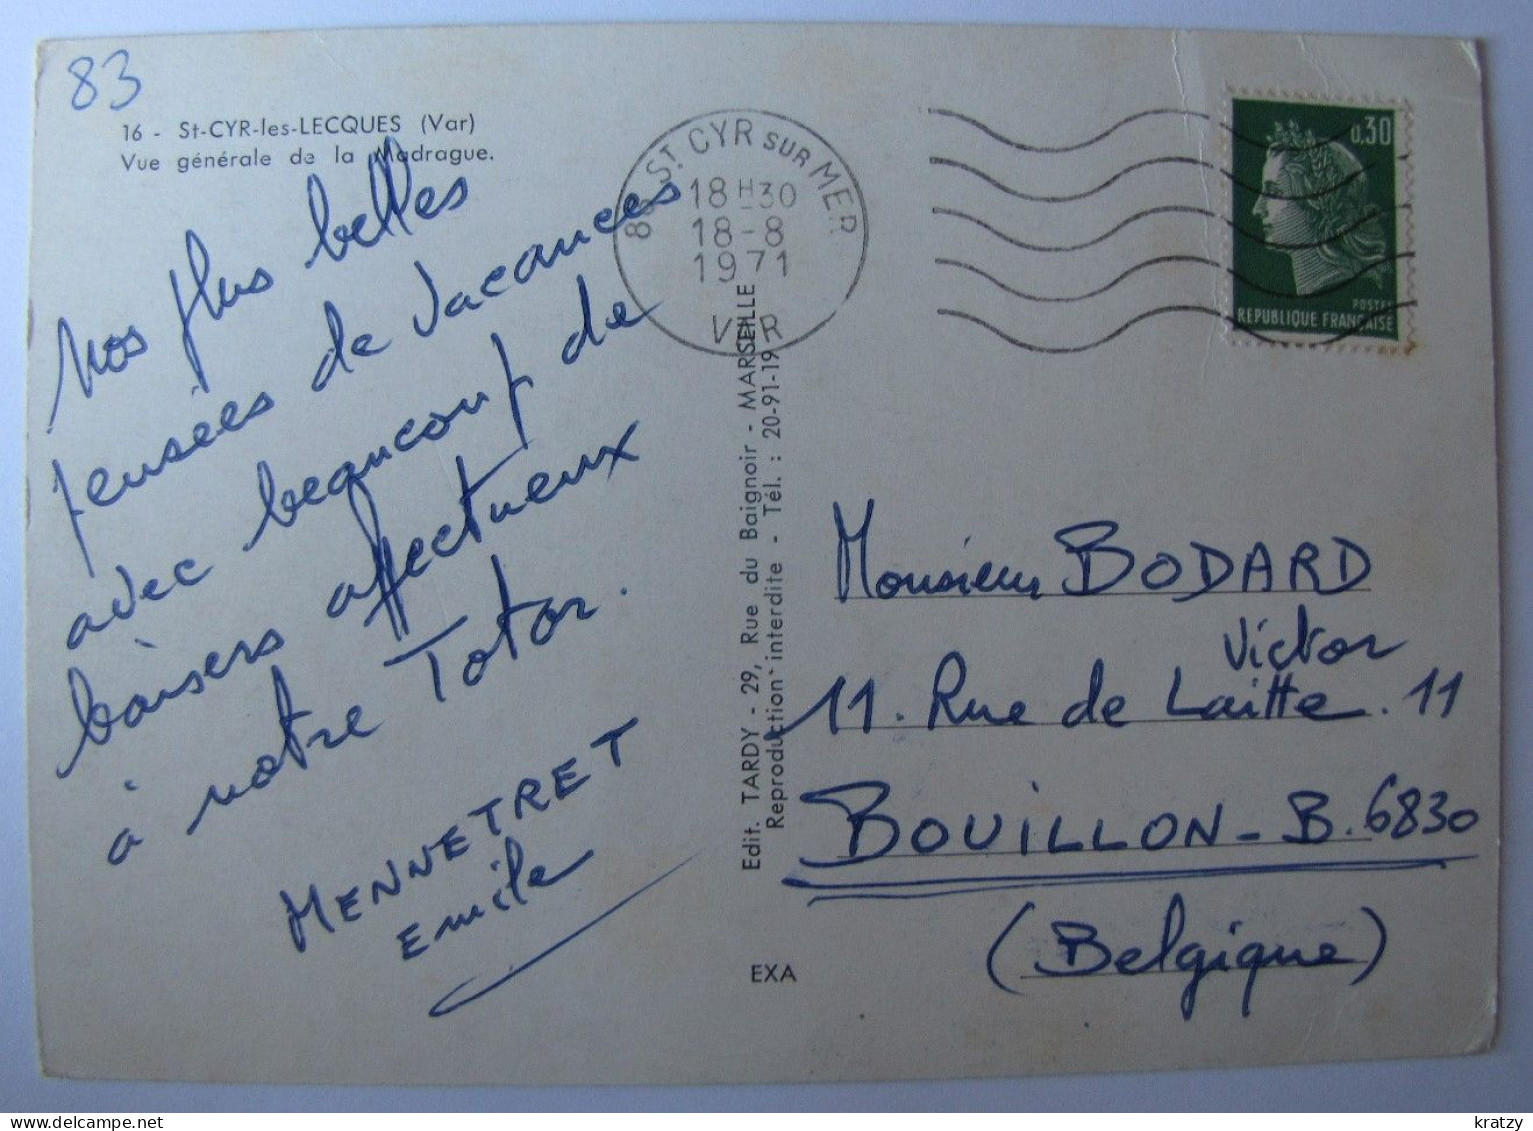 83
16 - St-CYR-les-LECQUES (Var)
Vue générale de la Madrague.
Nos plus belles
pensées de Vacances
avec beaucoup de
baisers affectueux
à notre Totor.
MENNETRET
Emile
ST CYR SUR MER
18H30
18-8
1971
VAR
0.30
POSTES
REPUBLIQUE FRANÇAISE
Edit. TARDY - 29, Rue du Baignoir - MARSEILLE
Reproduction interdite - Tél. : 20-91-19
EXA
Monsieur BODARD
Victor
11. Rue de Laitte. 11
BOUILLON - B. 6830
(Belgique)
delcampe.net
kratzy